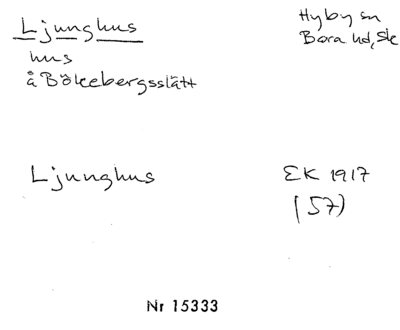 Ljunghus
Hyby sn
Bara hd, Sk
hus
å Bökebergsslätt
Ljunghus
EK 1917
(57)
Nr 15333